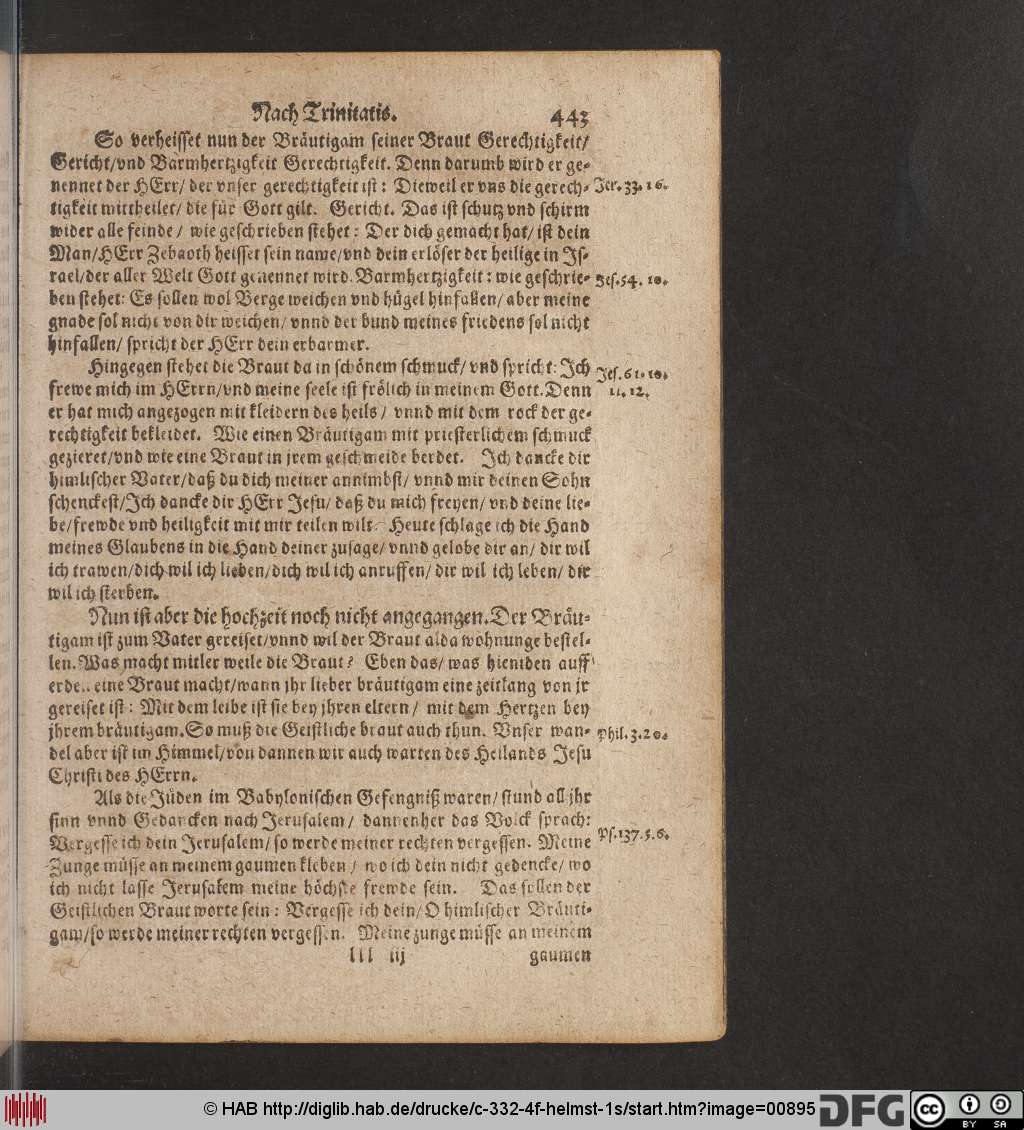 Nach Trinitatis. 443
So verheisset nun der Bräutigam seiner Braut Gerechtigkeit/
Gericht/vnd Barmhertzigkeit Gerechtigkeit. Denn darumb wird er ge-
nennet der HErr/ der vnser gerechtigkeit ist: Dieweil er vns die gerech- Jer. 33. 16.
tigkeit mittheilet/ die für Gott gilt. Gericht. Das ist schutz vnd schirm
wider alle feinde/ wie geschrieben stehet: Der dich gemacht hat/ ist dein
Man/HErr Zebaoth heisset sein name/vnd dein erlöser der heilige in Js-
rael/der aller Welt Gott genennet wird. Barmhertzigkeit: wie geschrie- Jes. 54. 10.
ben stehet: Es sollen wol Berge weichen vnd hügel hinfallen/ aber meine
gnade sol nicht von dir weichen/ vnnd der bund meines friedens sol nicht
hinfallen/ spricht der HErr dein erbarmer.
Hingegen stehet die Braut da in schönem schmuck/ vnd spricht: Jch Jes. 61. 10.
frewe mich im HErrn/vnd meine seele ist frölich in meinem Gott. Denn 11. 12.
er hat mich angezogen mit kleidern des heils/ vnnd mit dem rock der ge-
rechtigkeit bekleidet. Wie einen Bräutigam mit priesterlichem schmuck
gezieret/vnd wie eine Braut in jrem geschmeide berdet. Jch dancke dir
himlischer Vater/daß du dich meiner annimbst/ vnnd mir deinen Sohn
schenckest/Jch dancke dir HErr Jesu/ daß du mich freyen/ vnd deine lie-
be/frewde vnd heiligkeit mit mir teilen wilt. Heute schlage ich die Hand
meines Glaubens in die Hand deiner zusage/ vnnd gelobe dir an/ dir wil
ich trawen/dich wil ich lieben/dich wil ich anruffen/ dir wil ich leben/ dir
wil ich sterben.
Nun ist aber die hochzeit noch nicht angegangen. Der Bräu-
tigam ist zum Vater gereiset/vnnd wil der Braut alda wohnunge bestel-
len. Was macht mitler weile die Braut? Eben das/ was hieniden auff
erden eine Braut macht/wann jhr lieber bräutigam eine zeitlang von jr
gereiset ist: Mit dem leibe ist sie bey jhren eltern/ mit dem Hertzen bey
jhrem bräutigam. So muß die Geistliche braut auch thun. Vnser wan- Phil. 3. 20.
del aber ist im Himmel/von dannen wir auch warten des Heilands Jesu
Christi des HErrn.
Als die Jüden im Babylonischen Gefengniß waren/ stund all jhr
sinn vnnd Gedancken nach Jerusalem/ dannenher das Volck sprach:
Vergesse ich dein Jerusalem/ so werde meiner rechten vergessen. Meine Ps. 137. 5. 6.
Zunge müsse an meinem gaumen kleben/ wo ich dein nicht gedencke/ wo
ich nicht lasse Jerusalem meine höchste frewde sein. Das sollen der
Geistlichen Braut worte sein: Vergesse ich dein/ O himlischer Bräuti-
gam/so werde meiner rechten vergessen. Meine zunge müsse an meinem
lll iij gaumen
© HAB http://diglib.hab.de/drucke/c-332-4f-helmst-1s/start.htm?image=00895 DFG cc BY SA